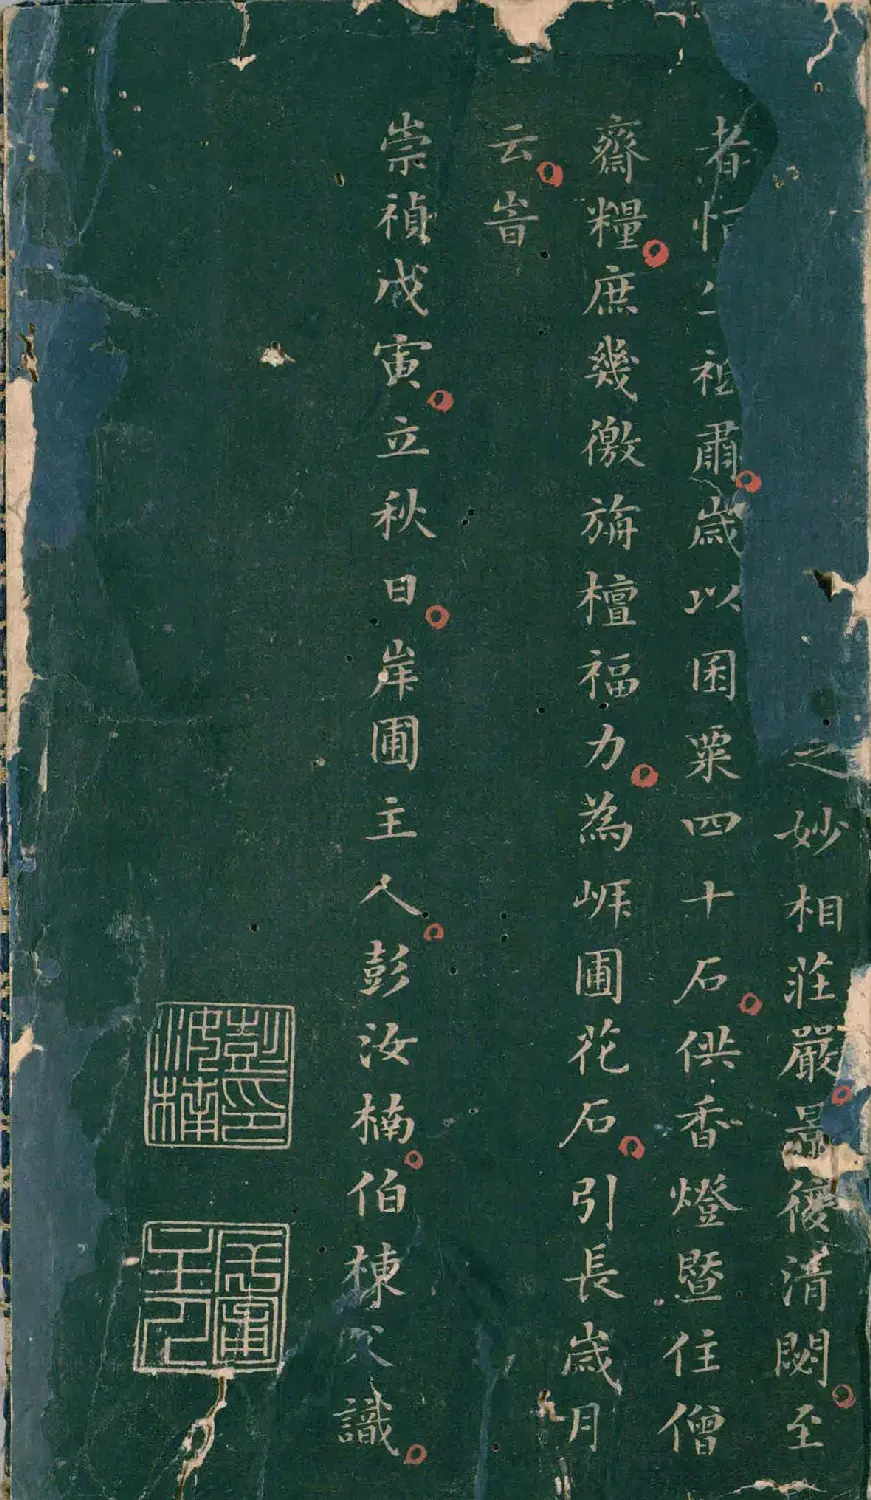 之妙相莊嚴景復清閟至
者恒
祖肅歲以囷粟四十石供香燈暨住僧
齋糧庶幾徼旃檀福力為㟁圃花石引長歲月
云旹
崇禎戊寅立秋日岸圃主人彭汝楠伯棟父識
彭汝楠印
岸圃主人